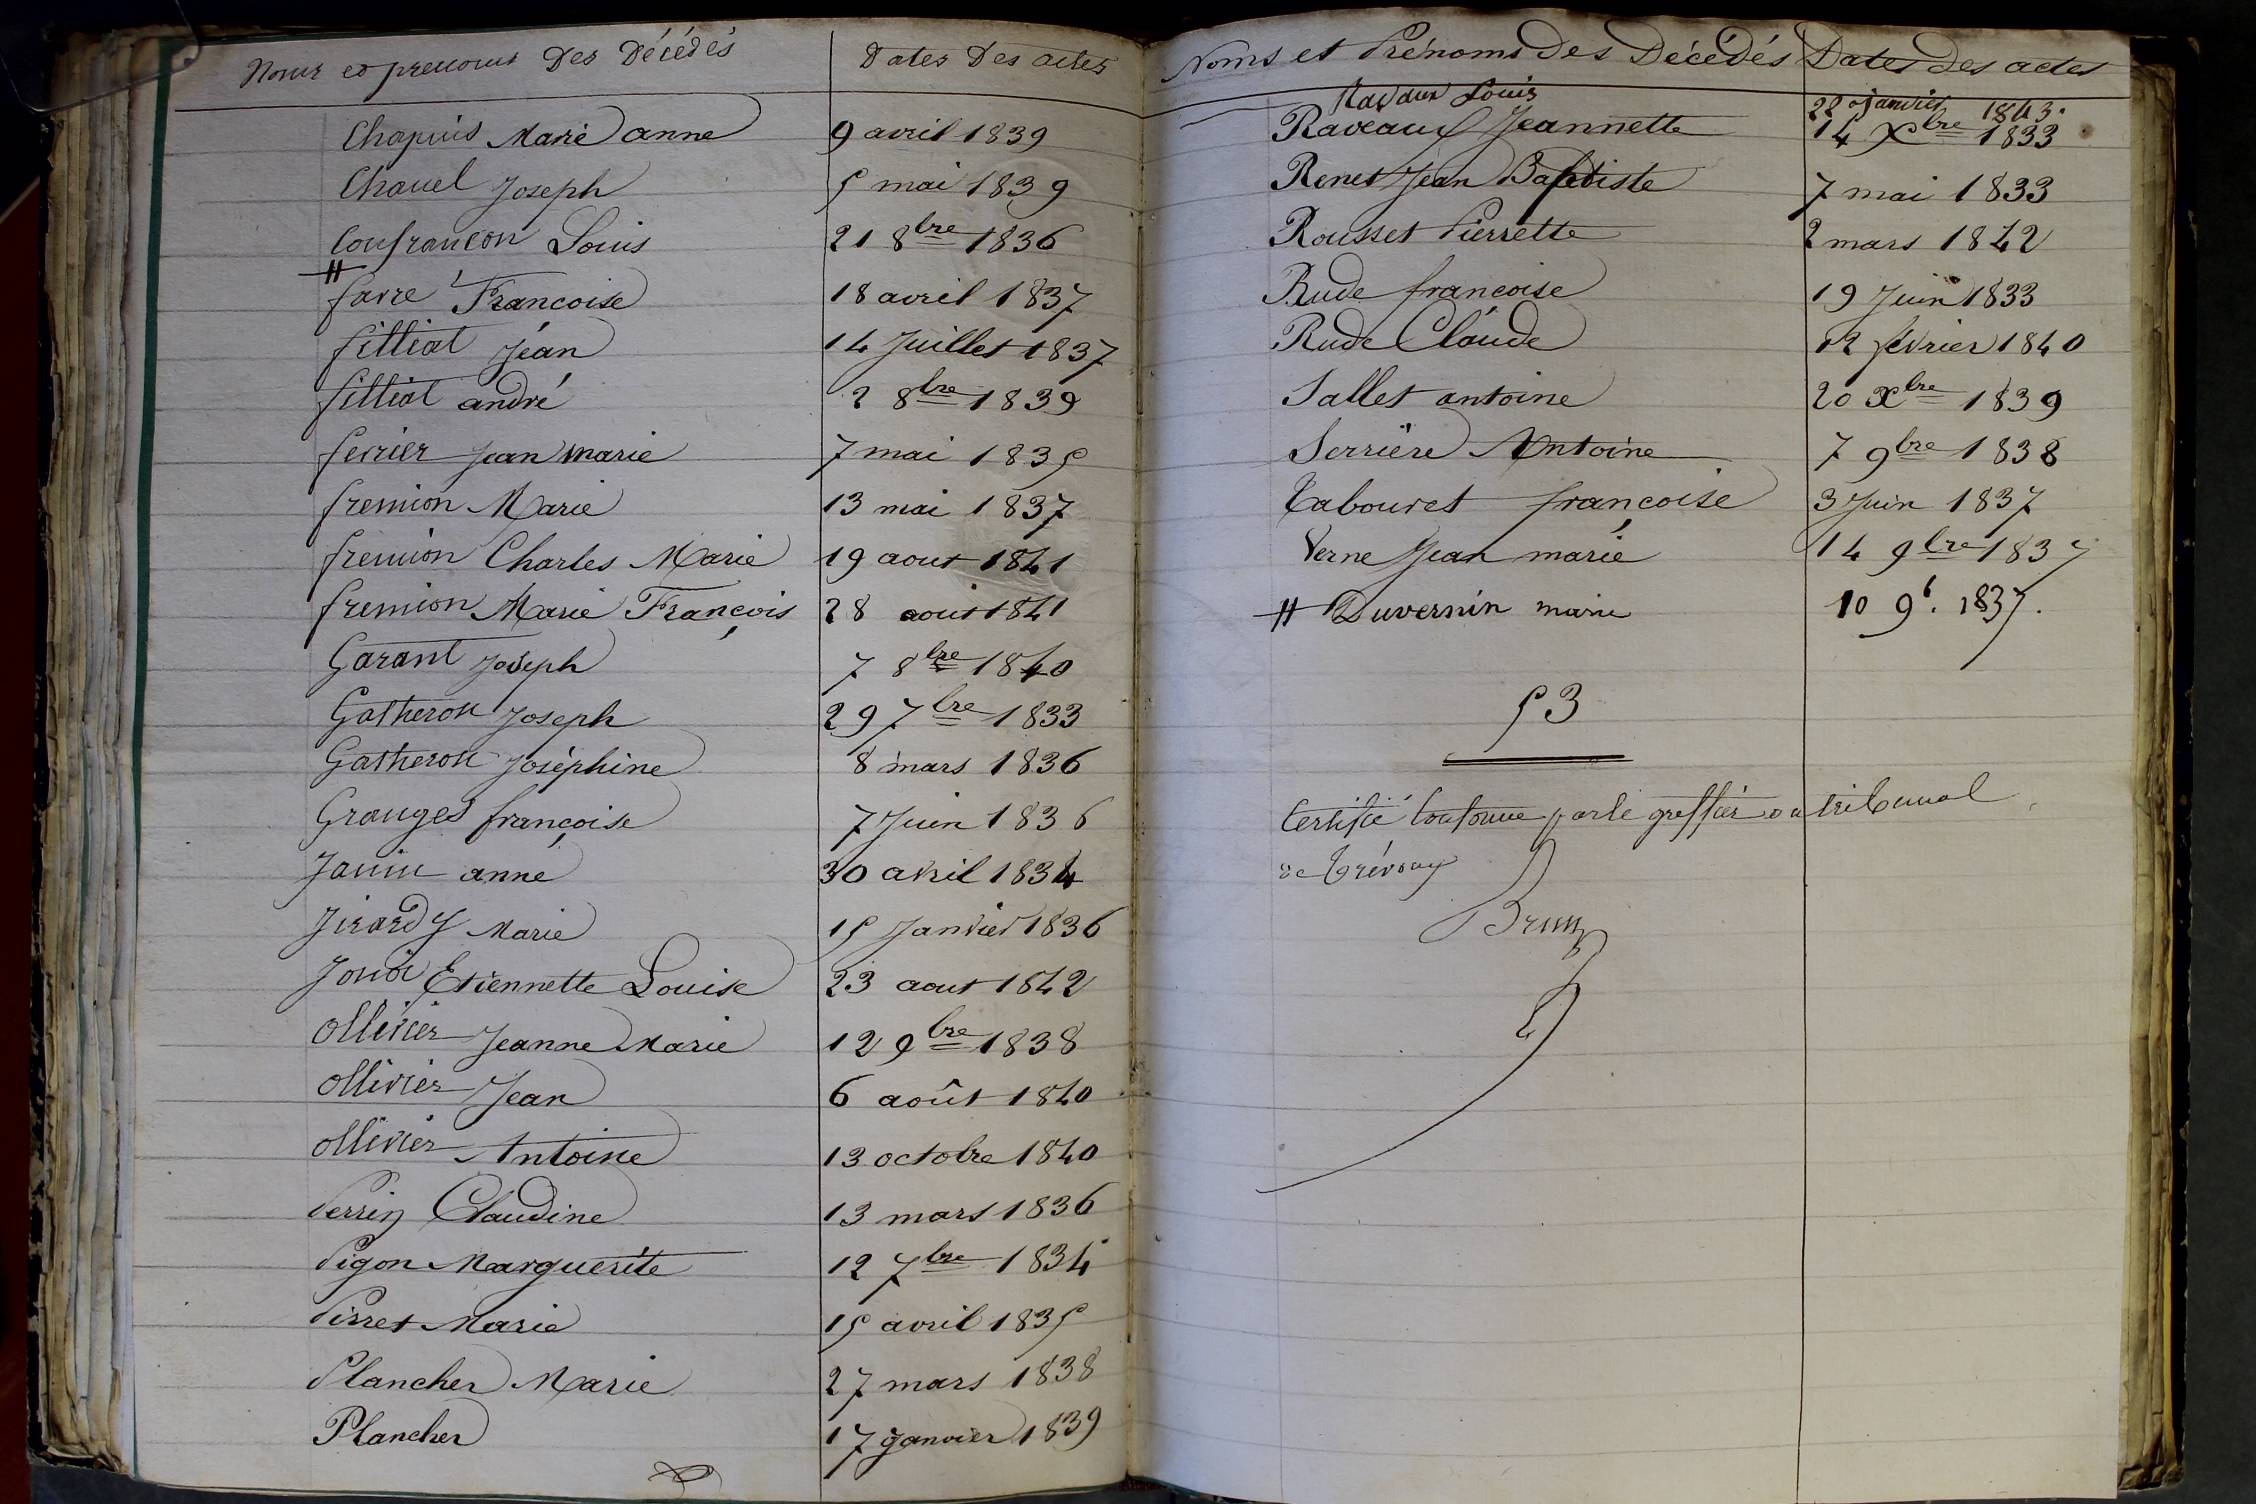 Noms et prenoms Des Décédés Dates Des actes
Chapuis Marie anne 9 avril 1839
Chauel Joseph 5 mai 1839
Confrancon Louis 21 8bre 1836
#
favre Francoise 18 avril 1837
filliat Jean 14 Juillet 1837
filliat andré 2 8bre 1839
fevrier Jean marie 7 mai 1835
fremion Marie 13 mai 1837
fremion Charles Marie 19 aout 1841
fremion Marie François 28 aout 1841
Garant Joseph 7 8bre 1840
Gatheron Joseph 29 7bre 1833
Gatheron Joséphine 8 mars 1836
Granges françoise 7 Juin 1836
Janin anne 30 avril 1834
Jirardy Marie 15 Janvier 1836
Etiennette Louise 23 aout 1842
Ollivier Jeanne Marie 12 9bre 1838
Ollivier Jean 6 août 1840
Ollivier Antoine 13 octobre 1840
Perrin Claudine 13 mars 1836
Pigon Marguerite 12 7bre 1834
Pirret Marie 15 avril 1835
Plancher Marie 27 mars 1838
Plancher 17 janvier 1839
Noms et Prénoms Des Décédés Dates des actes
Ravaux Louis 22 janvier 1843.
Raveaux Jeannette 14 Xbre 1833
Renet Jean Baptiste 7 mai 1833
Rousset Pierrette 2 mars 1842
Rude françoise 19 Juin 1833
Rude Claude 12 février 1840
Sallet antoine 20 Xbre 1839
Serrière Antoine 7 9bre 1838
Tabouret françoise 3 Juin 1837
Verne Jean marie 14 9bre 1837
# Duvernin marie 10 9b. 1837.
53
Certifié conforme par le greffier du tribunal
de Trévoux
Brun